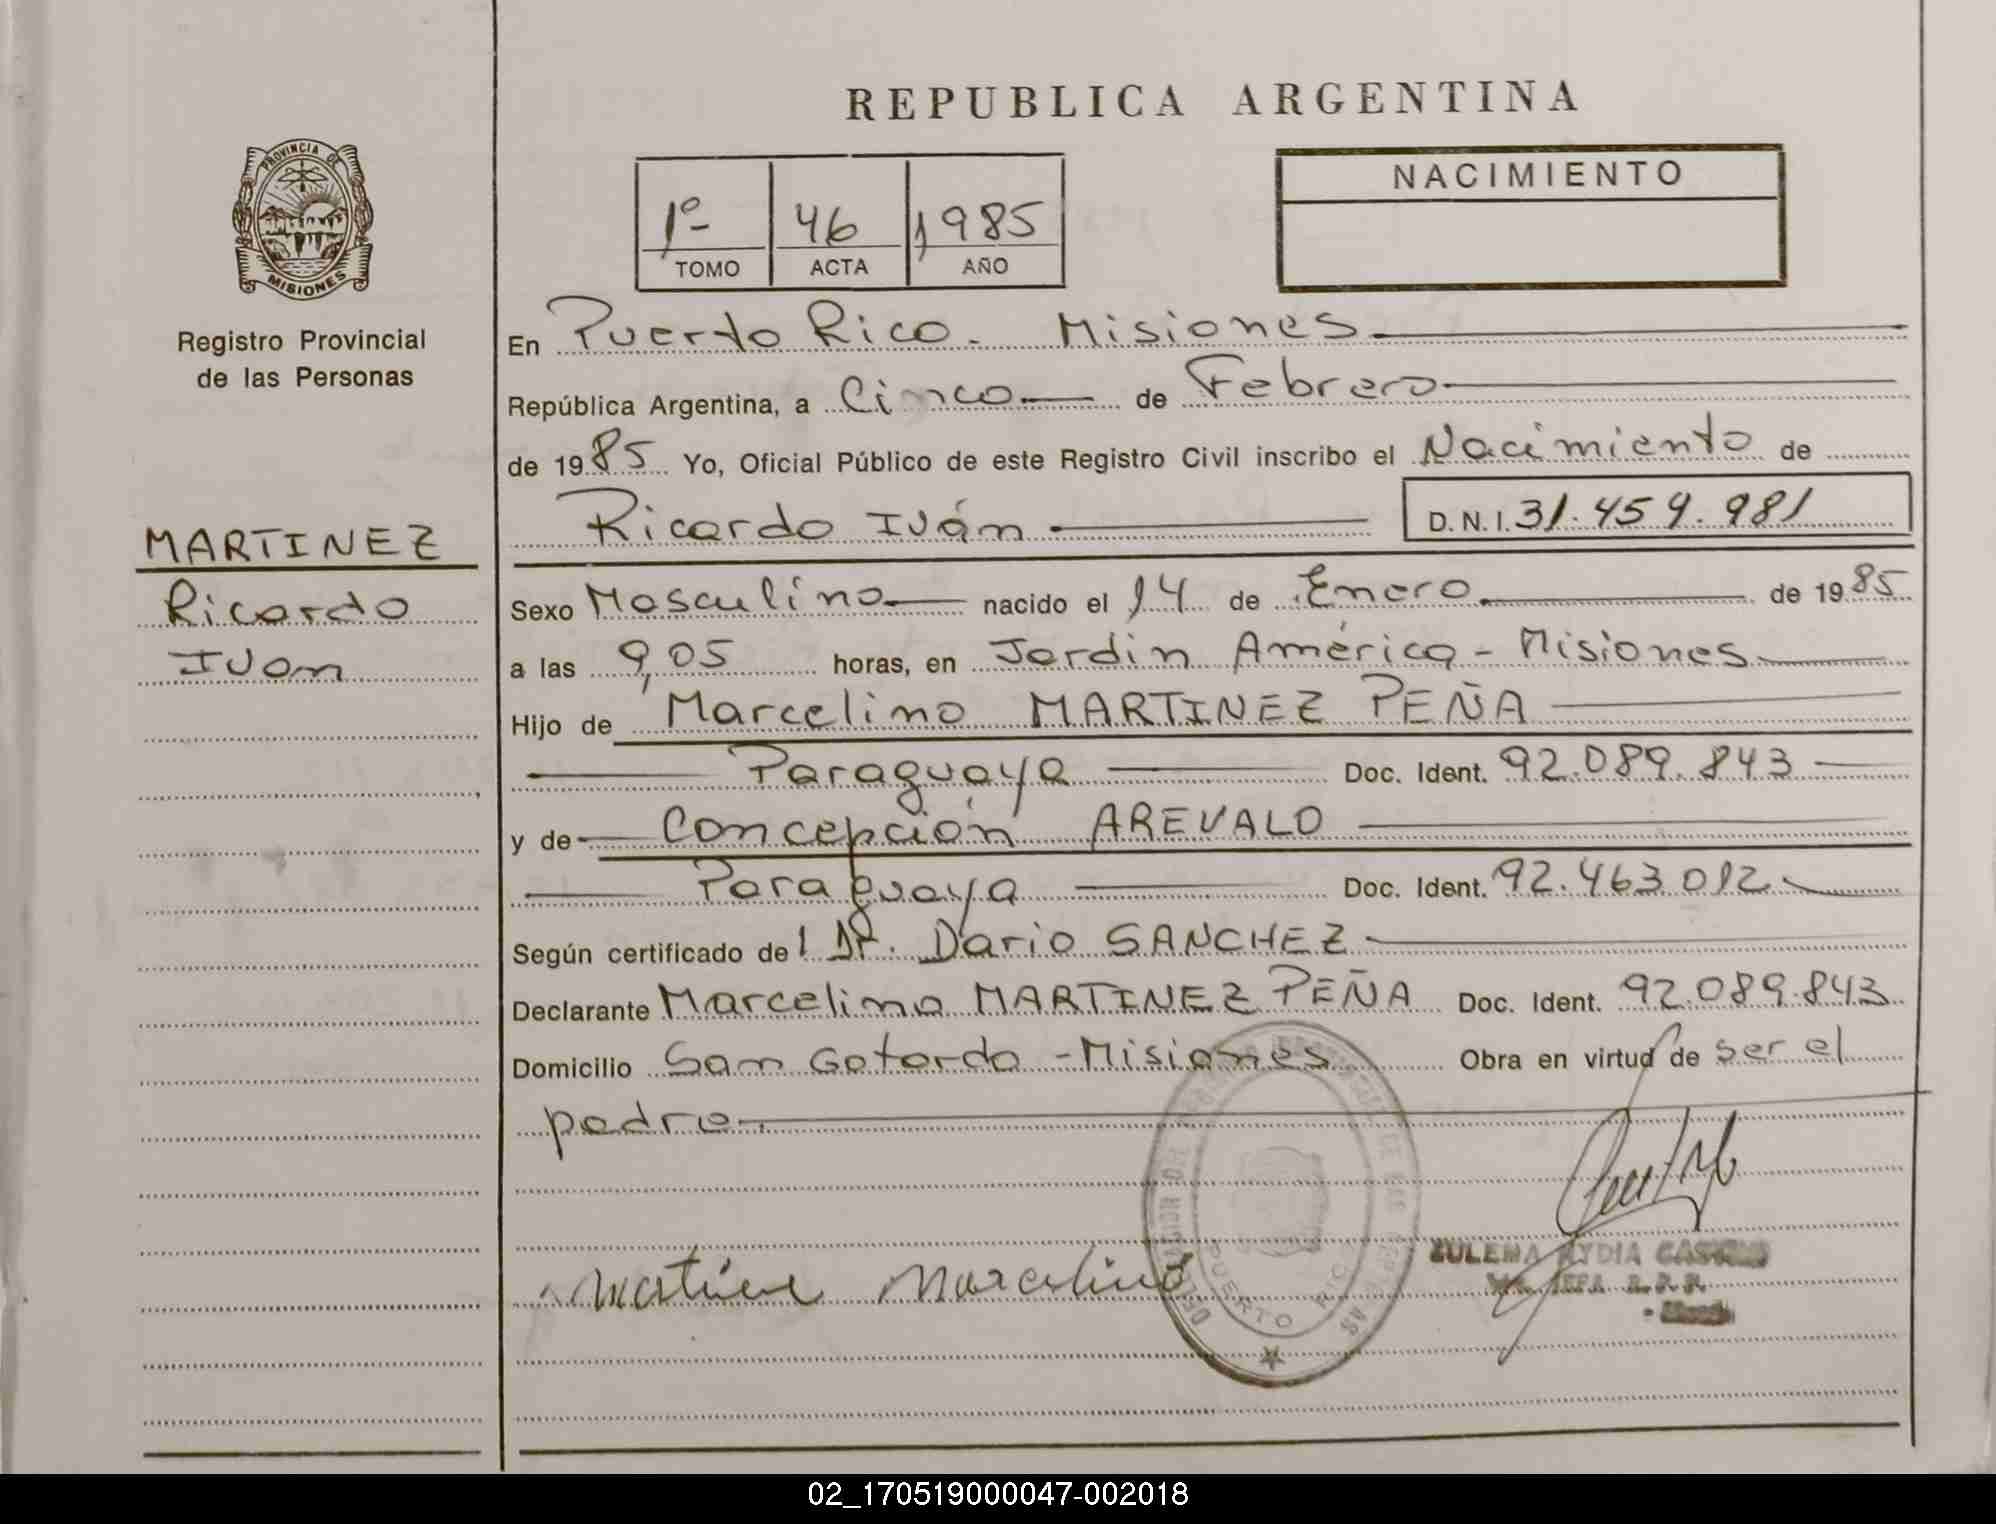 REPUBLICA ARGENTINA
PROVINCIA DE
MISIONES
Registro Provincial
de las Personas
1º 46 1985
TOMO ACTA AÑO
NACIMIENTO
En Puerto Rico - Misiones
República Argentina, a Cinco de Febrero
de 1985 Yo, Oficial Público de este Registro Civil inscribo el Nacimiento de
Ricardo Iván D.N.I. 31.459.981
MARTINEZ
Ricardo
Ivan
Sexo Masculino nacido el 14 de Enero de 1985
a las 9,05 horas, en Jardin América - Misiones
Hijo de Marcelino MARTINEZ PEÑA
Paraguaya Doc. Ident. 92.089.843
y de Concepción AREVALO
Paraguaya Doc. Ident. 92.463.012
Según certificado del Dr. Dario SANCHEZ
Declarante Marcelino MARTINEZ PEÑA Doc. Ident. 92.089.843
Domicilio San Gotardo - Misiones Obra en virtud de ser el
padre
PUERTO RICO
ZULEMA LYDIA
JEFA R.P.P.
Martinez Marcelino
02_170519000047-002018